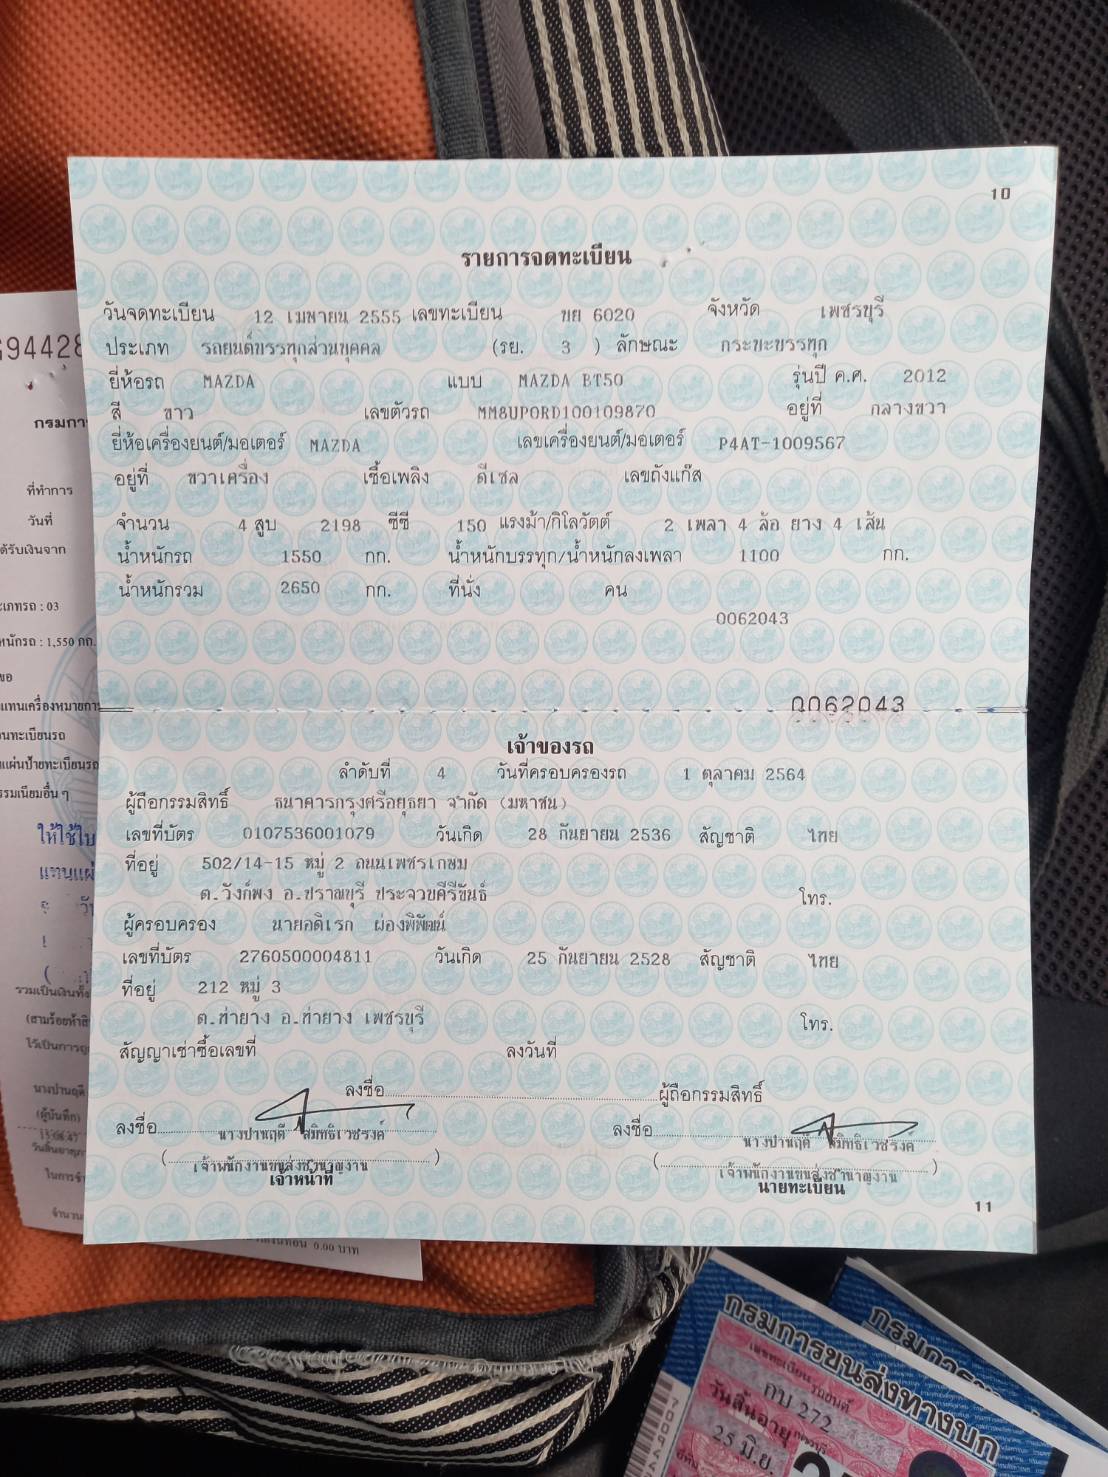 10
รายการจดทะเบียน
วันจดทะเบียน 12 เมษายน 2555 เลขทะเบียน ขย 6020 จังหวัด เพชรบุรี
ประเภท รถยนต์บรรทุกส่วนบุคคล (รย. 3 ) ลักษณะ กระบะบรรทุก
ยี่ห้อรถ MAZDA แบบ MAZDA BT50 รุ่นปี ค.ศ. 2012
สี ขาว เลขตัวรถ MM8UP0RD100109870 อยู่ที่ กลางขวา
ยี่ห้อเครื่องยนต์/มอเตอร์ MAZDA เลขเครื่องยนต์/มอเตอร์ P4AT-1009567
อยู่ที่ ขวาเครื่อง เชื้อเพลิง ดีเซล เลขถังแก๊ส
จำนวน 4 สูบ 2198 ซีซี 150 แรงม้า/กิโลวัตต์ 2 เพลา 4 ล้อ ยาง 4 เส้น
น้ำหนักรถ 1550 กก. น้ำหนักบรรทุก/น้ำหนักลงเพลา 1100 กก.
น้ำหนักรวม 2650 กก. ที่นั่ง คน
0062043
0062043
เจ้าของรถ
ลำดับที่ 4 วันที่ครอบครองรถ 1 ตุลาคม 2564
ผู้ถือกรรมสิทธิ์ ธนาคารกรุงศรีอยุธยา จำกัด (มหาชน)
เลขที่บัตร 0107536001079 วันเกิด 28 กันยายน 2536 สัญชาติ ไทย
ที่อยู่ 502/14-15 หมู่ 2 ถนนเพชรเกษม
ต.วังก์พง อ.ปราณบุรี ประจวบคีรีขันธ์ โทร.
ผู้ครอบครอง นายอดิเรก ผ่องพิพัฒน์
เลขที่บัตร 2760500004811 วันเกิด 25 กันยายน 2528 สัญชาติ ไทย
ที่อยู่ 212 หมู่ 3
ต.ท่ายาง อ.ท่ายาง เพชรบุรี โทร.
สัญญาเช่าซื้อเลขที่ ลงวันที่
ลงชื่อ ผู้ถือกรรมสิทธิ์
ลงชื่อ นางปานฤดี สมิทธิเวชรงค์ ลงชื่อ นางปานฤดี สมิทธิเวชรงค์
(เจ้าพนักงานขนส่งชำนาญงาน) (เจ้าพนักงานขนส่งชำนาญงาน)
เจ้าหน้าที่ นายทะเบียน
11
94428
กรมกา
ที่ทำการ
วันที่
ด้รับเงินจาก
เภทรถ : 03
หนักรถ : 1,550 กก.
ขอ
แทนเครื่องหมายกา
นทะเบียนรถ
แผ่นป้ายทะเบียนรถ
รรมเนียมอื่น ๆ
ให้ใช้ใบ
แทนแผ่
วั
รวมเป็นเงินทั้ง
(สามร้อยห้าสิ
ไว้เป็นการถู
นางปานฤดี
(ผู้บันทึก)
ในการชำ
จำนวน
0.00 บาท
กรมการขนส่งทางบก
เลขทะเบียนรถยนต์
กบ 272
วันสิ้นอายุ
25 มิ.ย.